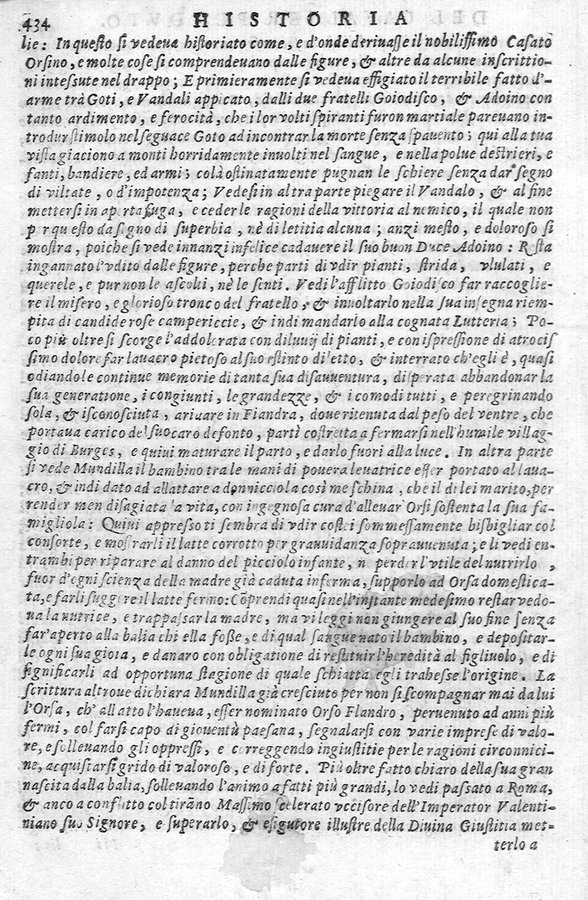 434 HISTORIA
lie: In questo si vedeua historiato come, e d'onde deriuasse il nobilissimo Casato
Orsino, e molte cose si comprendeuano dalle figure, & altre da alcune inscrittio-
ni intessute nel drappo; E primieramente si vedeua effigiato il terribile fatto d'-
arme trà Goti, e Vandali appicato, dalli due fratelli Goiodisco, & Adoino con
tanto ardimento, e ferocità, che i lor volti spiranti furon martiale pareuano in-
trodur stimolo nel seguace Goto ad incontrar la morte senza spauento; qui alla tua
vista giaciono a monti horridamente inuolti nel sangue, e nella polue destrieri, e
fanti, bandiere, ed armi; colà ostinatamente pugnan le schiere senza dar segno
di viltate, o d'impotenza; Vedesi in altra parte piegare il Vandalo, & al fine
mettersi in aperta fuga, e ceder le ragioni della vittoria al nemico, il quale non
p r qu esto da segno di superbia, nè di letitia alcuna; anzi mesto, e doloroso si
mostra, poiche si vede innanzi infelice cadauere il suo buon Duce Adoino: Resta
ingannato l'vdito dalle figure, perche parti di vdir pianti, strida, vlulati, e
querele, e pur non le ascolti, nè le senti. Vedi l'afflitto Goiodisco far raccoglie-
re il misero, e glorioso tronco del fratello, & inuoltarlo nella sua insegna riem-
pita di candide rose campericcie, & indi mandarlo alla cognata Lutteria; Po-
co più oltre si scorge l'addolerata con diluuij di pianti, e con ispressione di atrocis
simo dolore far lauacro pietoso al suo estinto diletto, & interrato ch'egli è, quasi
odiando le continue memorie di tanta sua disauuentura, disperata abbandonar la
sua generatione, i congiunti, le grandezze, & i comodi tutti, e peregrinando
sola, & isconosciuta, ariuare in Fiandra, doue ritenuta dal peso del ventre, che
portaua carico de' suo caro defonto, partì costretta a fermarsi nell'humile villag-
gio di Burges, e quiui maturare il parto, e darlo fuori alla luce. In altra parte
si vede Mundilla il bambino tra le mani di pouera leuatrice esser portato al laua-
cro, & indi dato ad allattare a donnicciola così meschina, che il di lei marito, per
render men disagiata la vita, con ingegnosa cura d'alleuar Orsi sostenta la sua fa-
migliola: Quiui appresso ti sembra di vdir costei sommessamente bisbigliar col
consorte, e mostrarli il latte corrotto per grauuidanza soprauuenuta; e li vedi en-
trambi per riparare al danno del picciolo infante, n perder l'vtile del nutrirlo,
fuor d'ogni scienza della madre già caduta inferma, supporlo ad Orsa domestica-
ta, e farli suggere il latte fermo: Cõprendi quasi nell'instante medesimo restar vedo-
ua la nutrice, e trappassar la madre, ma vi leggi non giungere al suo fine senza
far'aperto alla balia chi ella fosse, e di qual sangue nato il bambino, e depositar-
le ogni sua gioia, e danaro con obligatione di restituir l'heredità al figliuolo, e di
significarli ad opportuna stagione di quale schiatta egli trahesse l'origine. La
scrittura altroue dichiara Mundilla già cresciuto per non si scompagnar mai da lui
l'Orsa, ch'allatto l'haueua, esser nominato Orso Flandro, peruenuto ad anni più
fermi, col farsi capo di giouentù paesana, segnalarsi con varie imprese di valo-
re, e solleuando gli oppressi, e correggendo ingiustitie per le ragioni circonnici-
ne, acquistarsi grido di valoroso, e di forte. Più oltre fatto chiaro della sua gran
nascita dalla balia, solleuando l'animo a fatti più grandi, lo vedi passato a Roma,
& anco a conflitto col tirãno Massimo scelerato vccisore dell'Imperator Valenti-
niano suo Signore, e superarlo, & esigutore illustre della Diuina Giustitia met-
terlo a